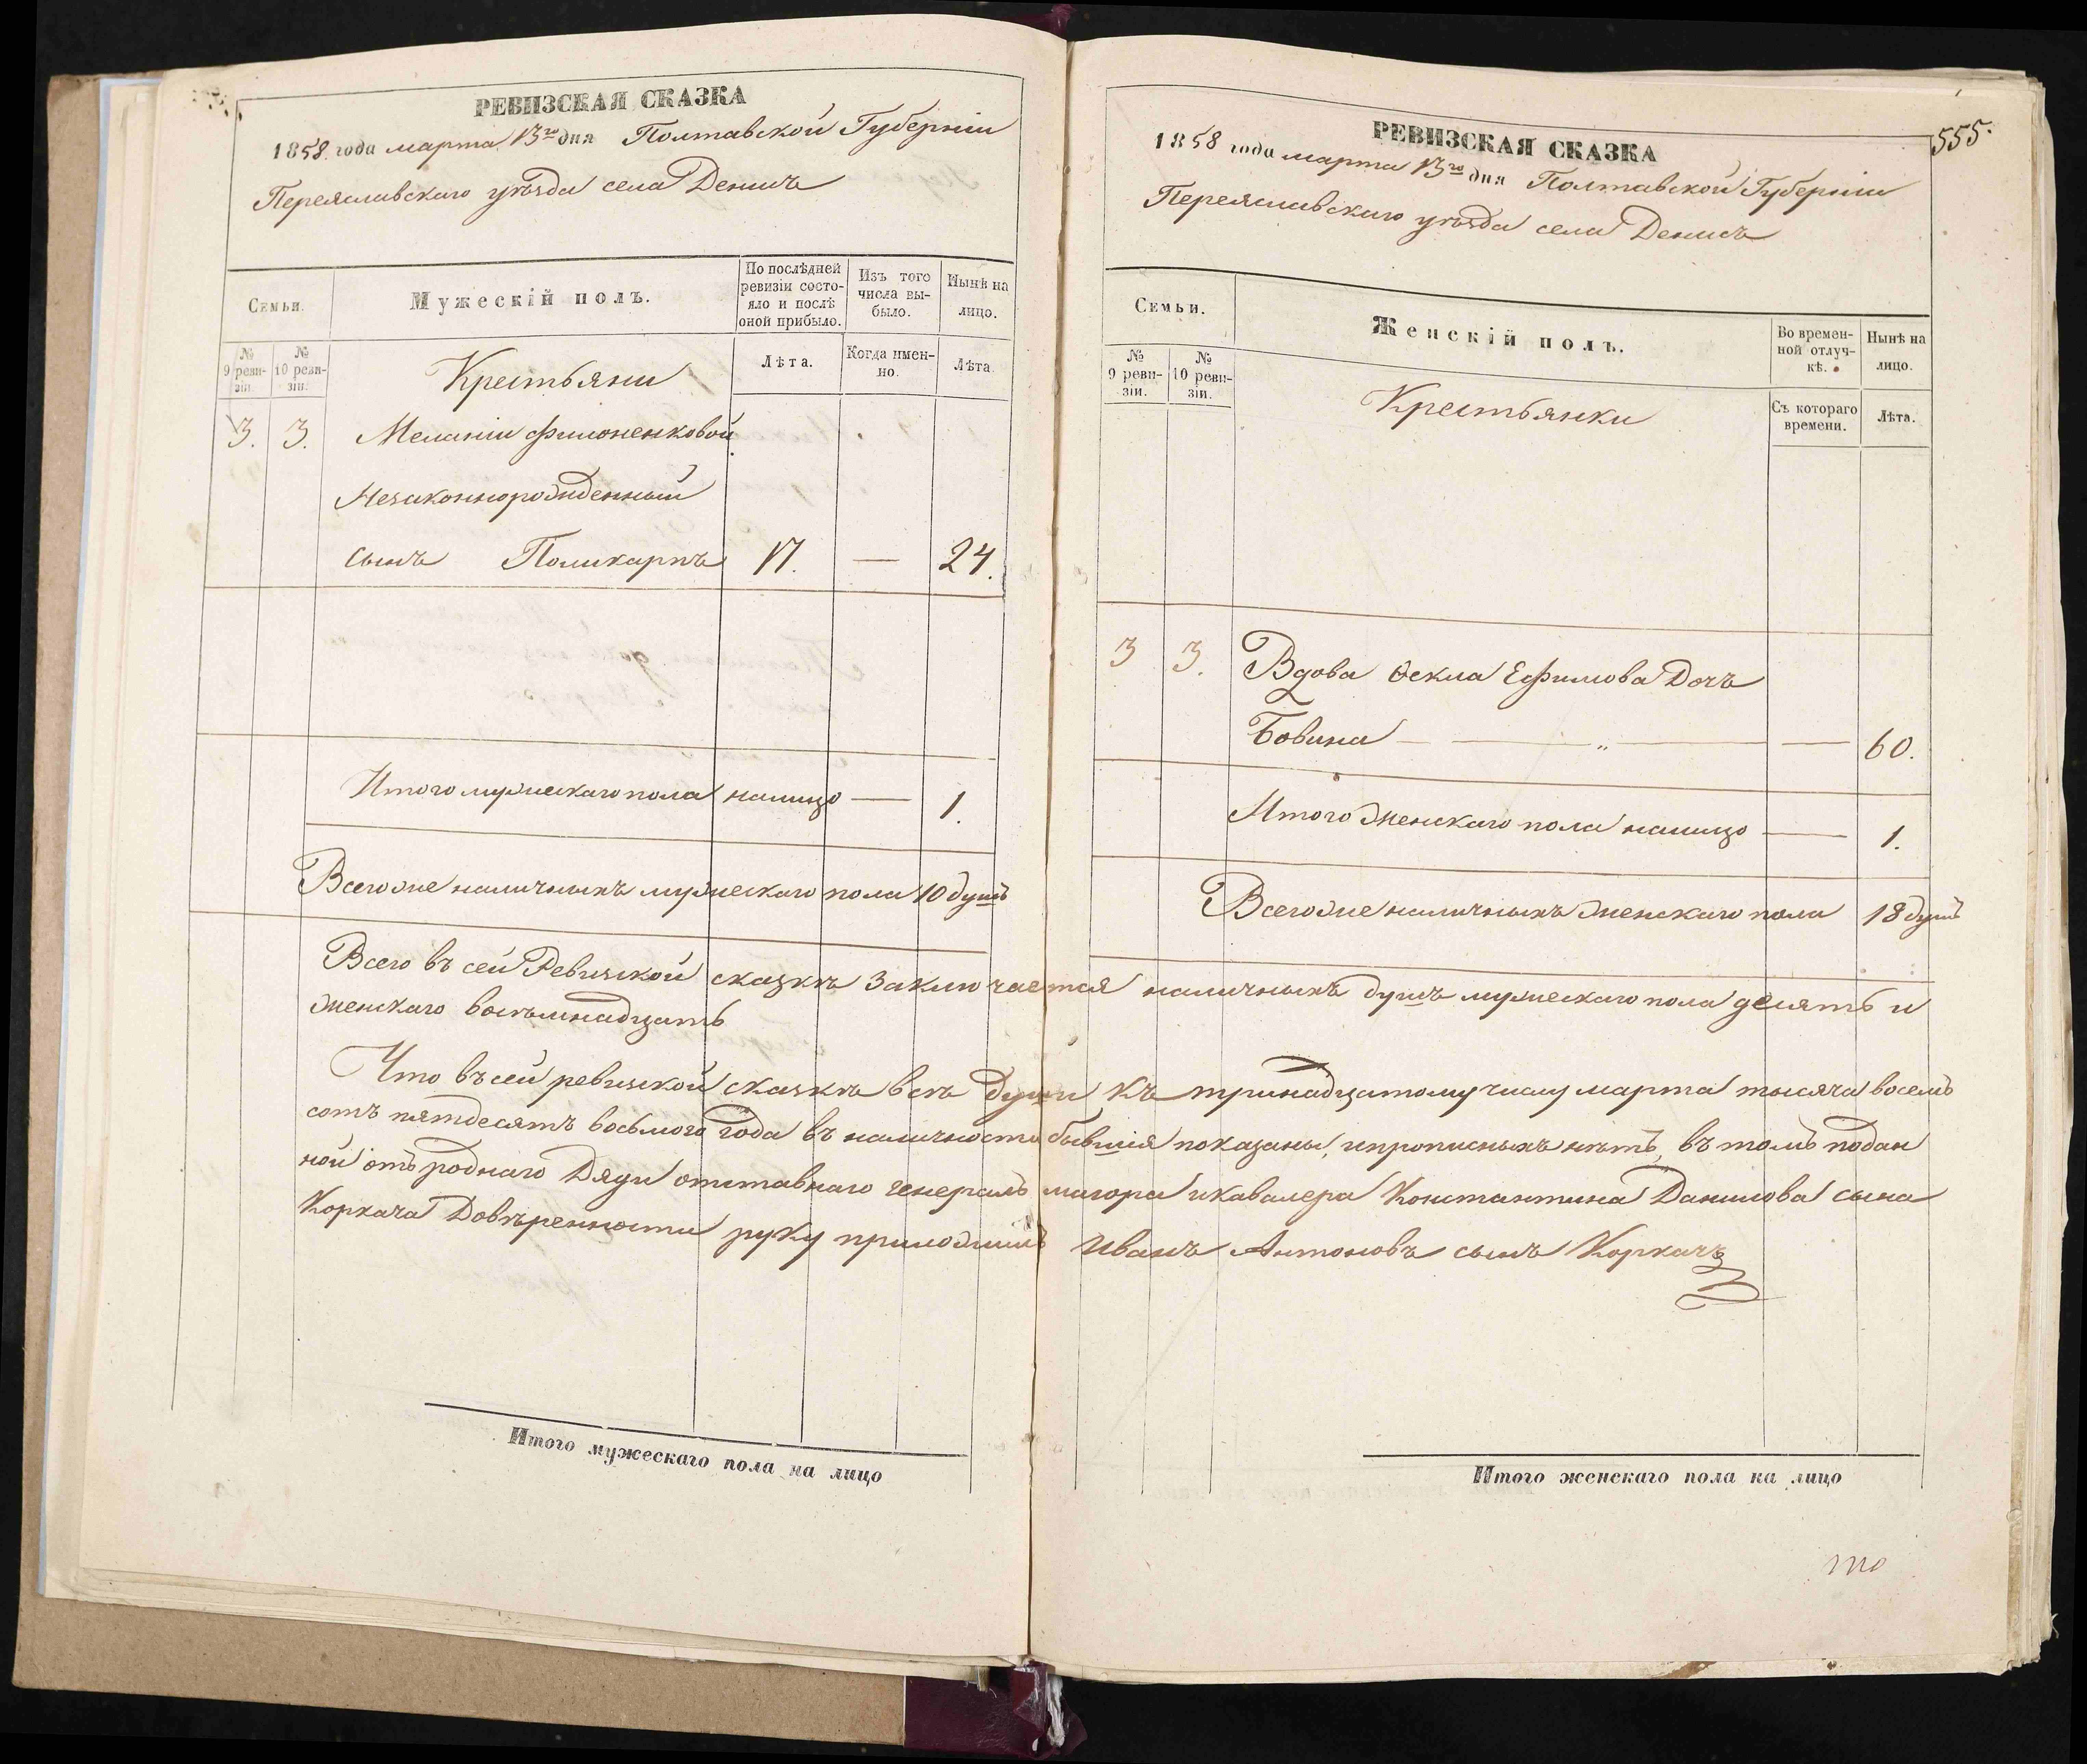 РЕВИЗСКАЯ СКАЗКА
1858 года марта 13го дня Полтавской Губерніи
Переяславскаго уѣзда села Денисъ
Семьи.
Мужескій полъ.
По послѣдней ревизіи состояло и послѣ оной прибыло.
Изъ того числа выбыло.
Нынѣ на лицо.
№ 9 ревизіи.
№ 10 ревизіи.
Крестьяни
Лѣта.
Когда именно.
Лѣта.
3. 3. Меланіи Филоненковой
Незаконнорожденный
сынъ Поликарпъ 17. — 24.
Итого мужескаго пола налицо — 1.
Всего же наличныхъ мужескаго пола 10 душъ
РЕВИЗСКАЯ СКАЗКА
555.
1858 года марта 13го дня Полтавской Губерніи
Переяславскаго уѣзда села Денисъ
Семьи.
Женскій полъ.
Во временной отлучкѣ.
Нынѣ на лицо.
№ 9 ревизіи.
№ 10 ревизіи.
Крестьянки
Съ котораго времени.
Лѣта.
3 3. Вдова Ѳекла Ефимова Дочь
Бовина — — „ — — 60.
Итого женскаго пола налицо — 1.
Всего же наличныхъ женскаго пола 18 душъ
Всего въ сей Ревизской сказкѣ заключается наличныхъ душъ мужескаго пола десять и
женскаго восемнадцать
Что въ сей ревизской сказкѣ всѣ души къ тринадцатому числу марта тысяча восемь
сотъ пятдесятъ восьмого года въ наличности бывшія показаны, и прописныхъ нѣтъ, въ томъ подан
ной отъ роднаго Дяди отставнаго генералъ маіора и кавалера Константина Данилова сына
Коркача Довѣренности руку приложилъ Иванъ Антоновъ сынъ Коркачъ
Итого мужескаго пола на лицо
Итого женскаго пола на лицо